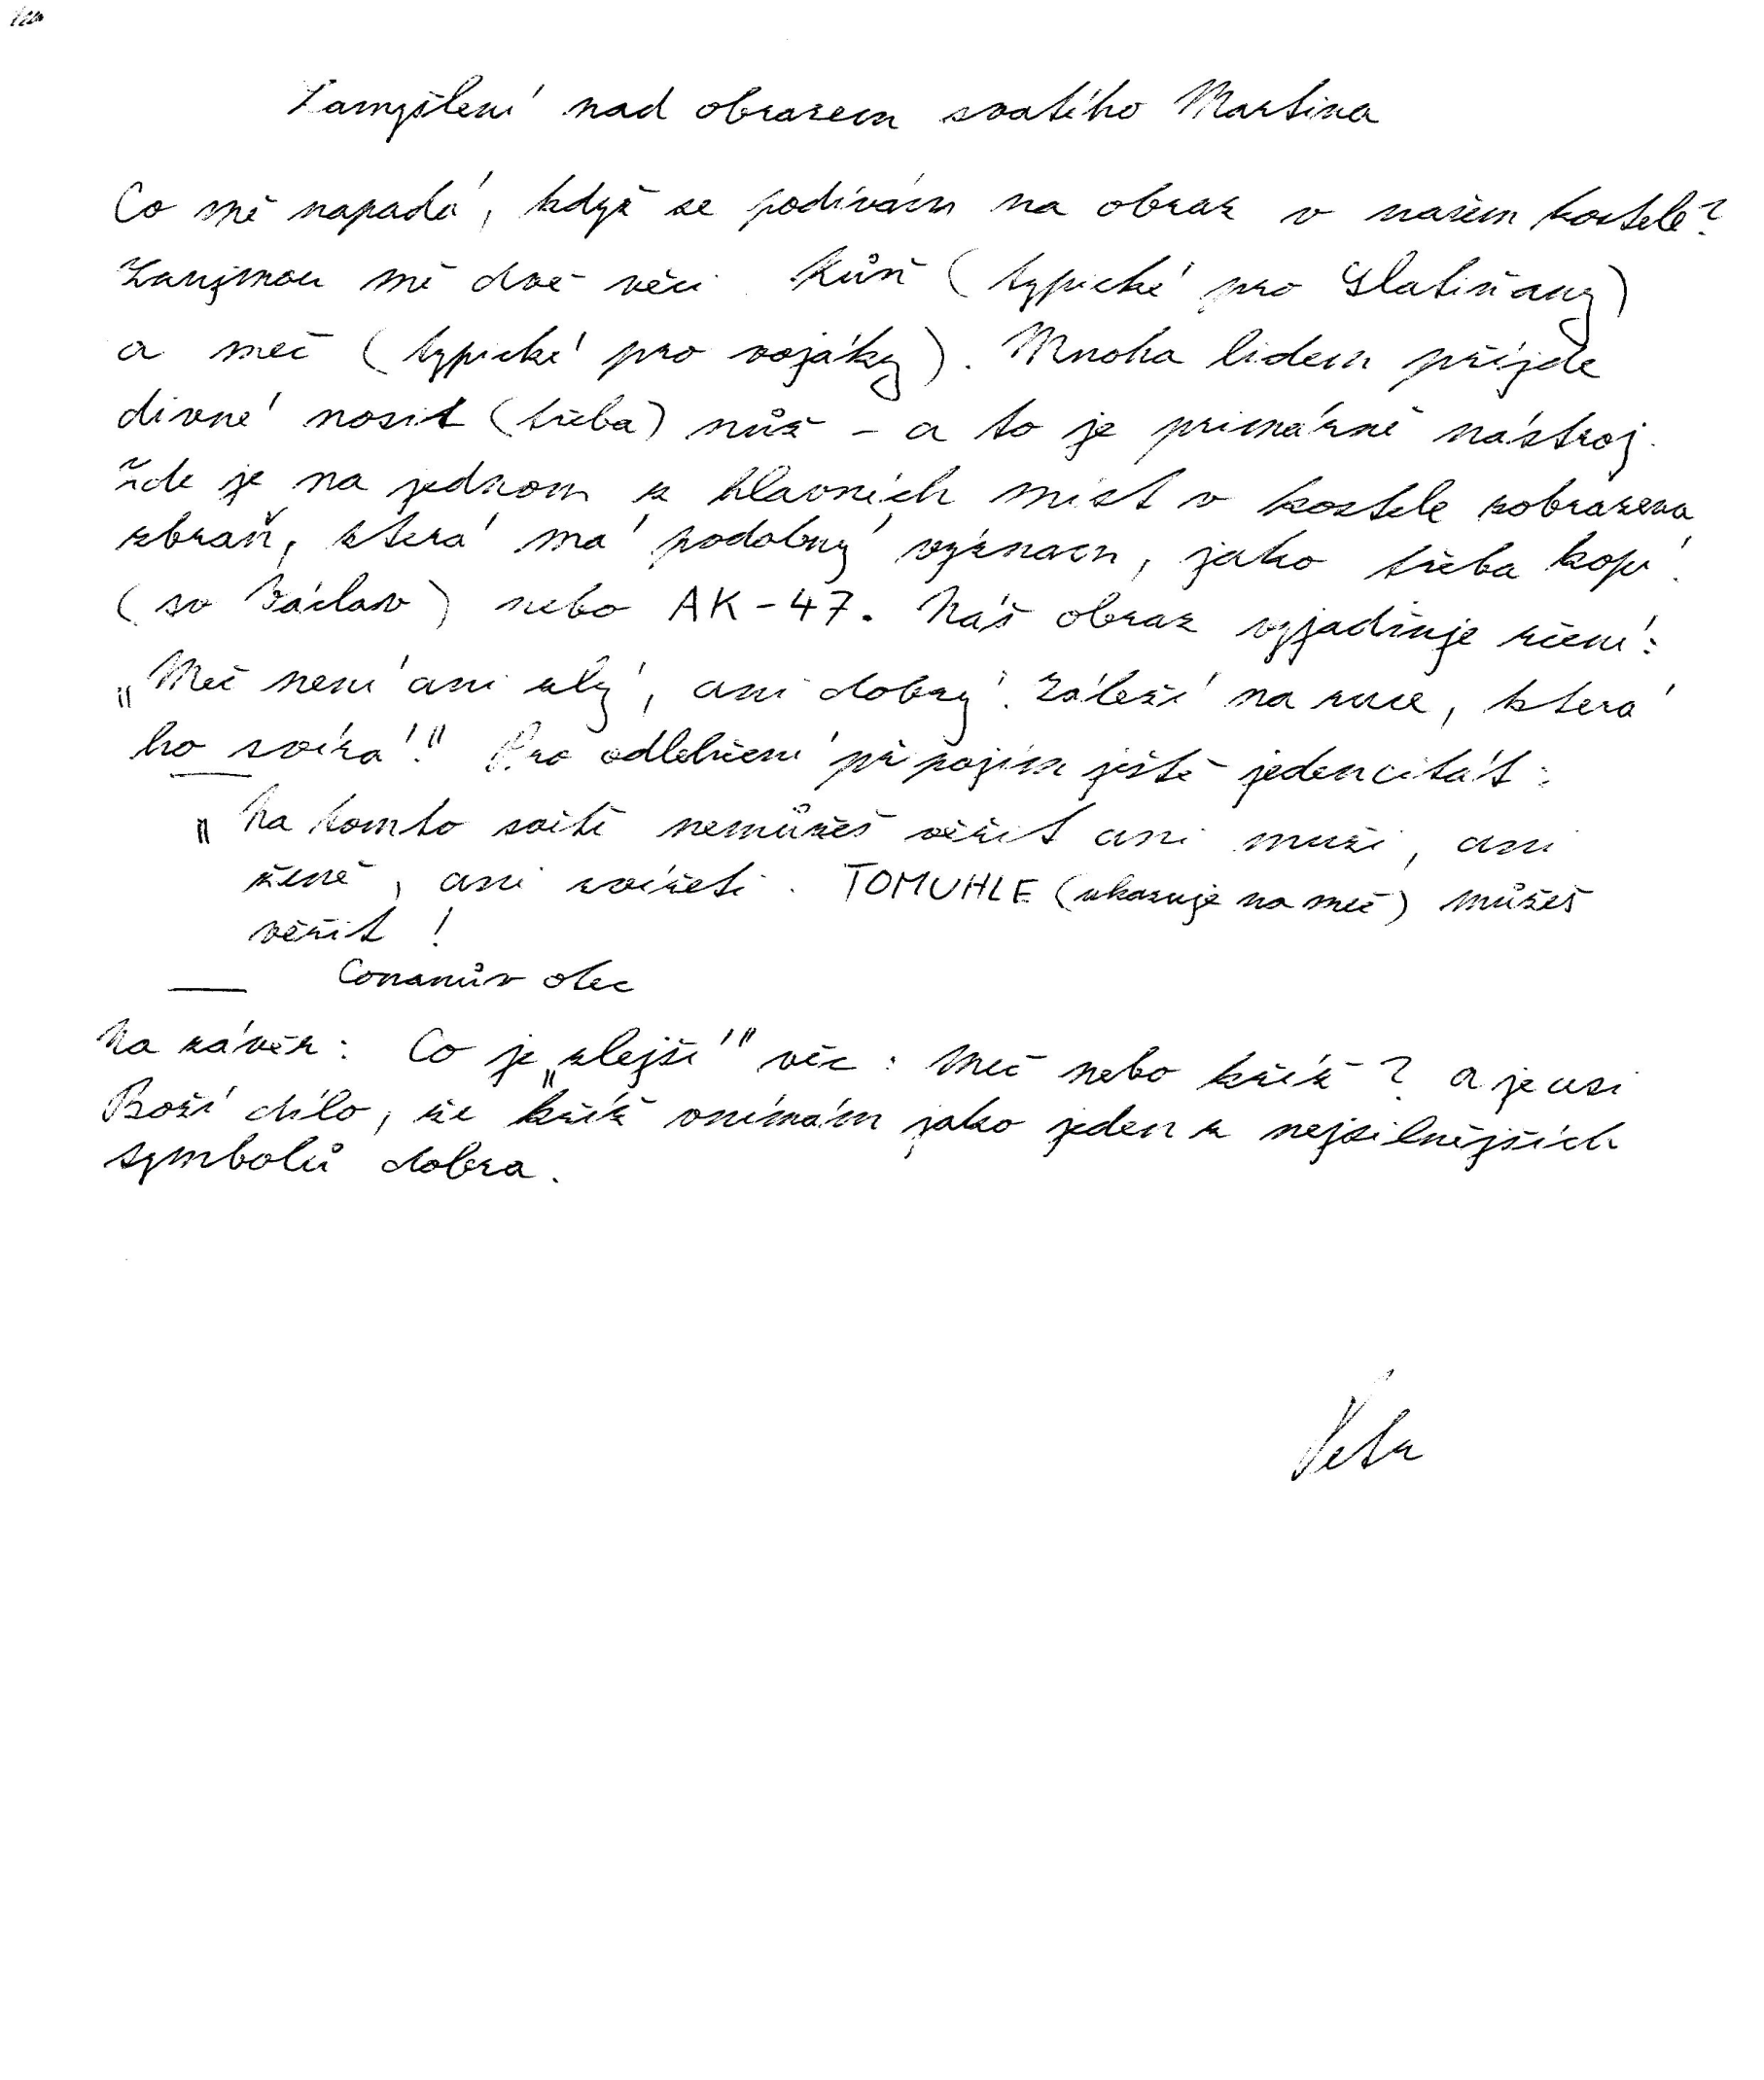 Zamyšlení nad obrazem svatého Martina
Co mě napadá, když se podívám na obraz v našem kostele?
Zaujmou mě dvě věci. Kůň (typické pro Slatiňany)
a meč (typické pro vojáky). Mnoha lidem přijde
divné nosit (třeba) nůž - a to je primárně nástroj.
Zde je na jednom z hlavních míst v kostele zobrazena
zbraň, která má podobný význam, jako třeba kopí
(sv Václav) nebo AK-47. Náš obraz vyjadřuje rčení:
„Meč není ani zlý, ani dobrý. Záleží na ruce, která
ho svírá!" Pro odlehčení připojím ještě jeden citát:
„Na tomto světě nemůžeš věřit ani muži, ani
ženě, ani zvířeti. TOMUHLE (ukazuje na meč) můžeš
věřit!
Conanův otec
Na závěr: Co je „zlejší" věc: Meč nebo kříž? a je asi
Boží dílo, že kříž vnímám jako jeden z nejsilnějších
symbolů dobra.
Petr